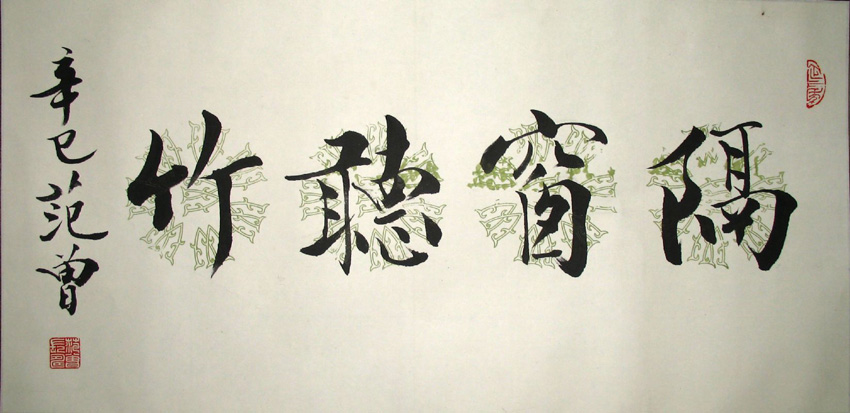 隔窗聽竹
辛巳范曾